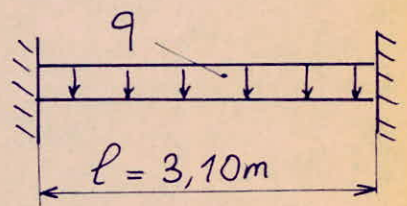 q
l = 3,10m